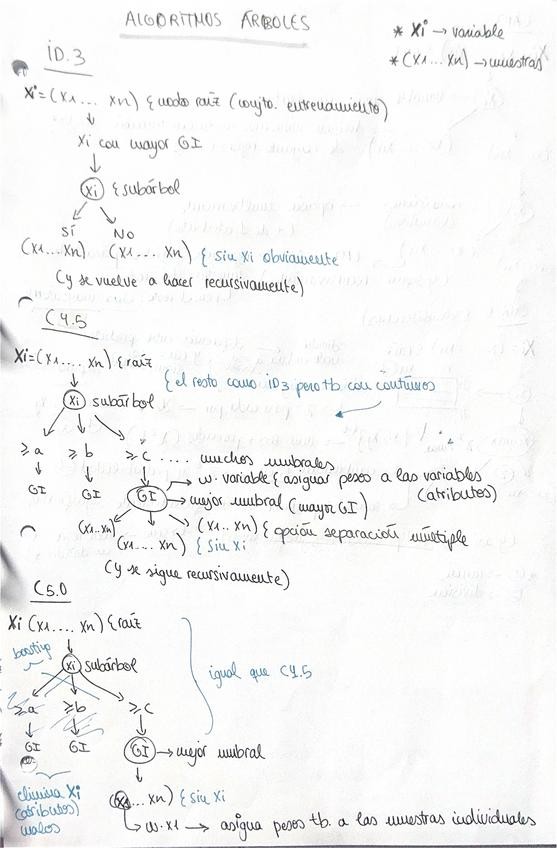 ALGORITMOS ÁRBOLES
* Xi → variable
* (X1... Xn) → muestras
iD.3
Xi = (X1... Xn) { nodo raíz (conjto. entrenamiento)
Xi con mayor GI
Xi { subárbol
Sí No
(X1...Xn) (X1....Xn) { sin Xi obviamente
(y se vuelve a hacer recursivamente)
C4.5
Xi = (X1.... Xn) { raíz
{ el resto como iD3 pero tb con continuos
Xi subárbol
≥a ≥b ≥c .... muchos umbrales
GI GI GI → w. variable { asignar pesos a las variables
(atributos)
→ mejor umbral (mayor GI)
(X1...Xn) (X1...Xn) { opción separación múltiple
(X1...Xn) { sin Xi
(y se sigue recursivamente)
C5.0
Xi (X1.... Xn) { raíz
Xi subárbol
igual que C4.5
≥a ≥b ≥c
GI GI GI → mejor umbral
elimina Xi
(atributos)
malos
(X1...Xn) { sin Xi
w.X1 → asigna pesos tb. a las muestras individuales